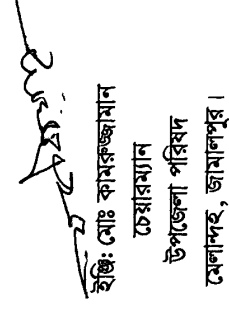 ইঞ্জি: মোঃ কামরুজ্জামান
চেয়ারম্যান
উপজেলা পরিষদ
মেলান্দহ, জামালপুর।